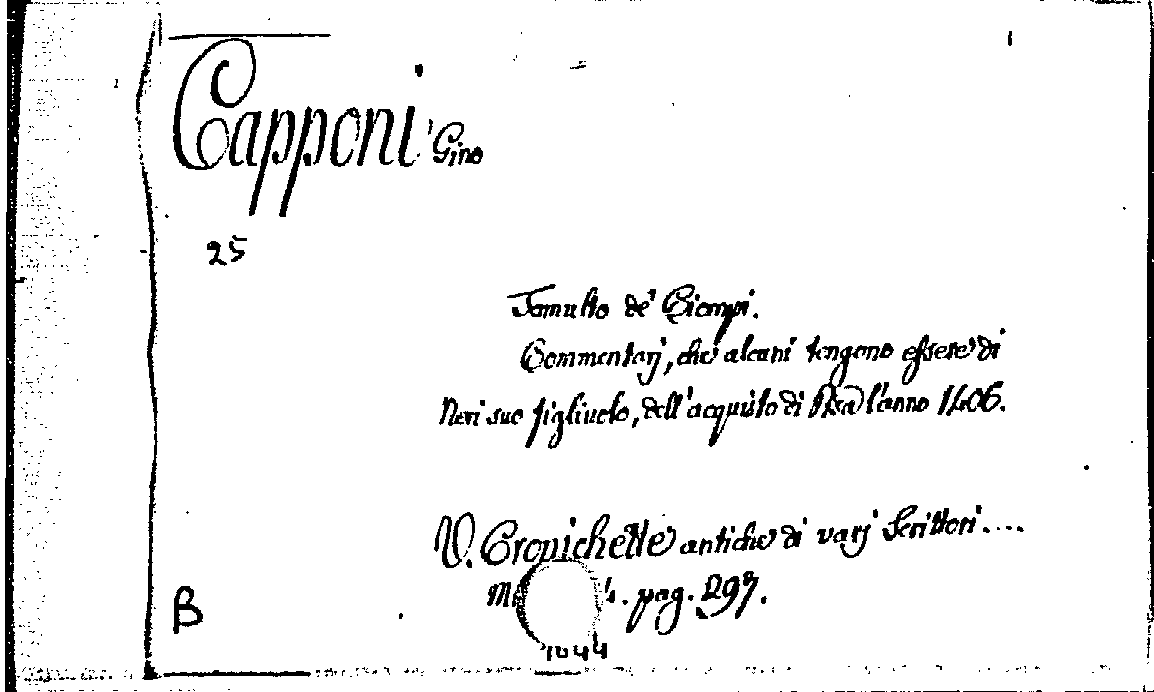 Capponi Gino
25
Tumulto de' Ciompi.
Commentarj, che alcuni tengono essere di
Neri suo figliuolo, dell'acquisto di Pisa l'anno 1406.
V. Cronichette antiche di varj Scrittori....
pag. 297.
B
1044